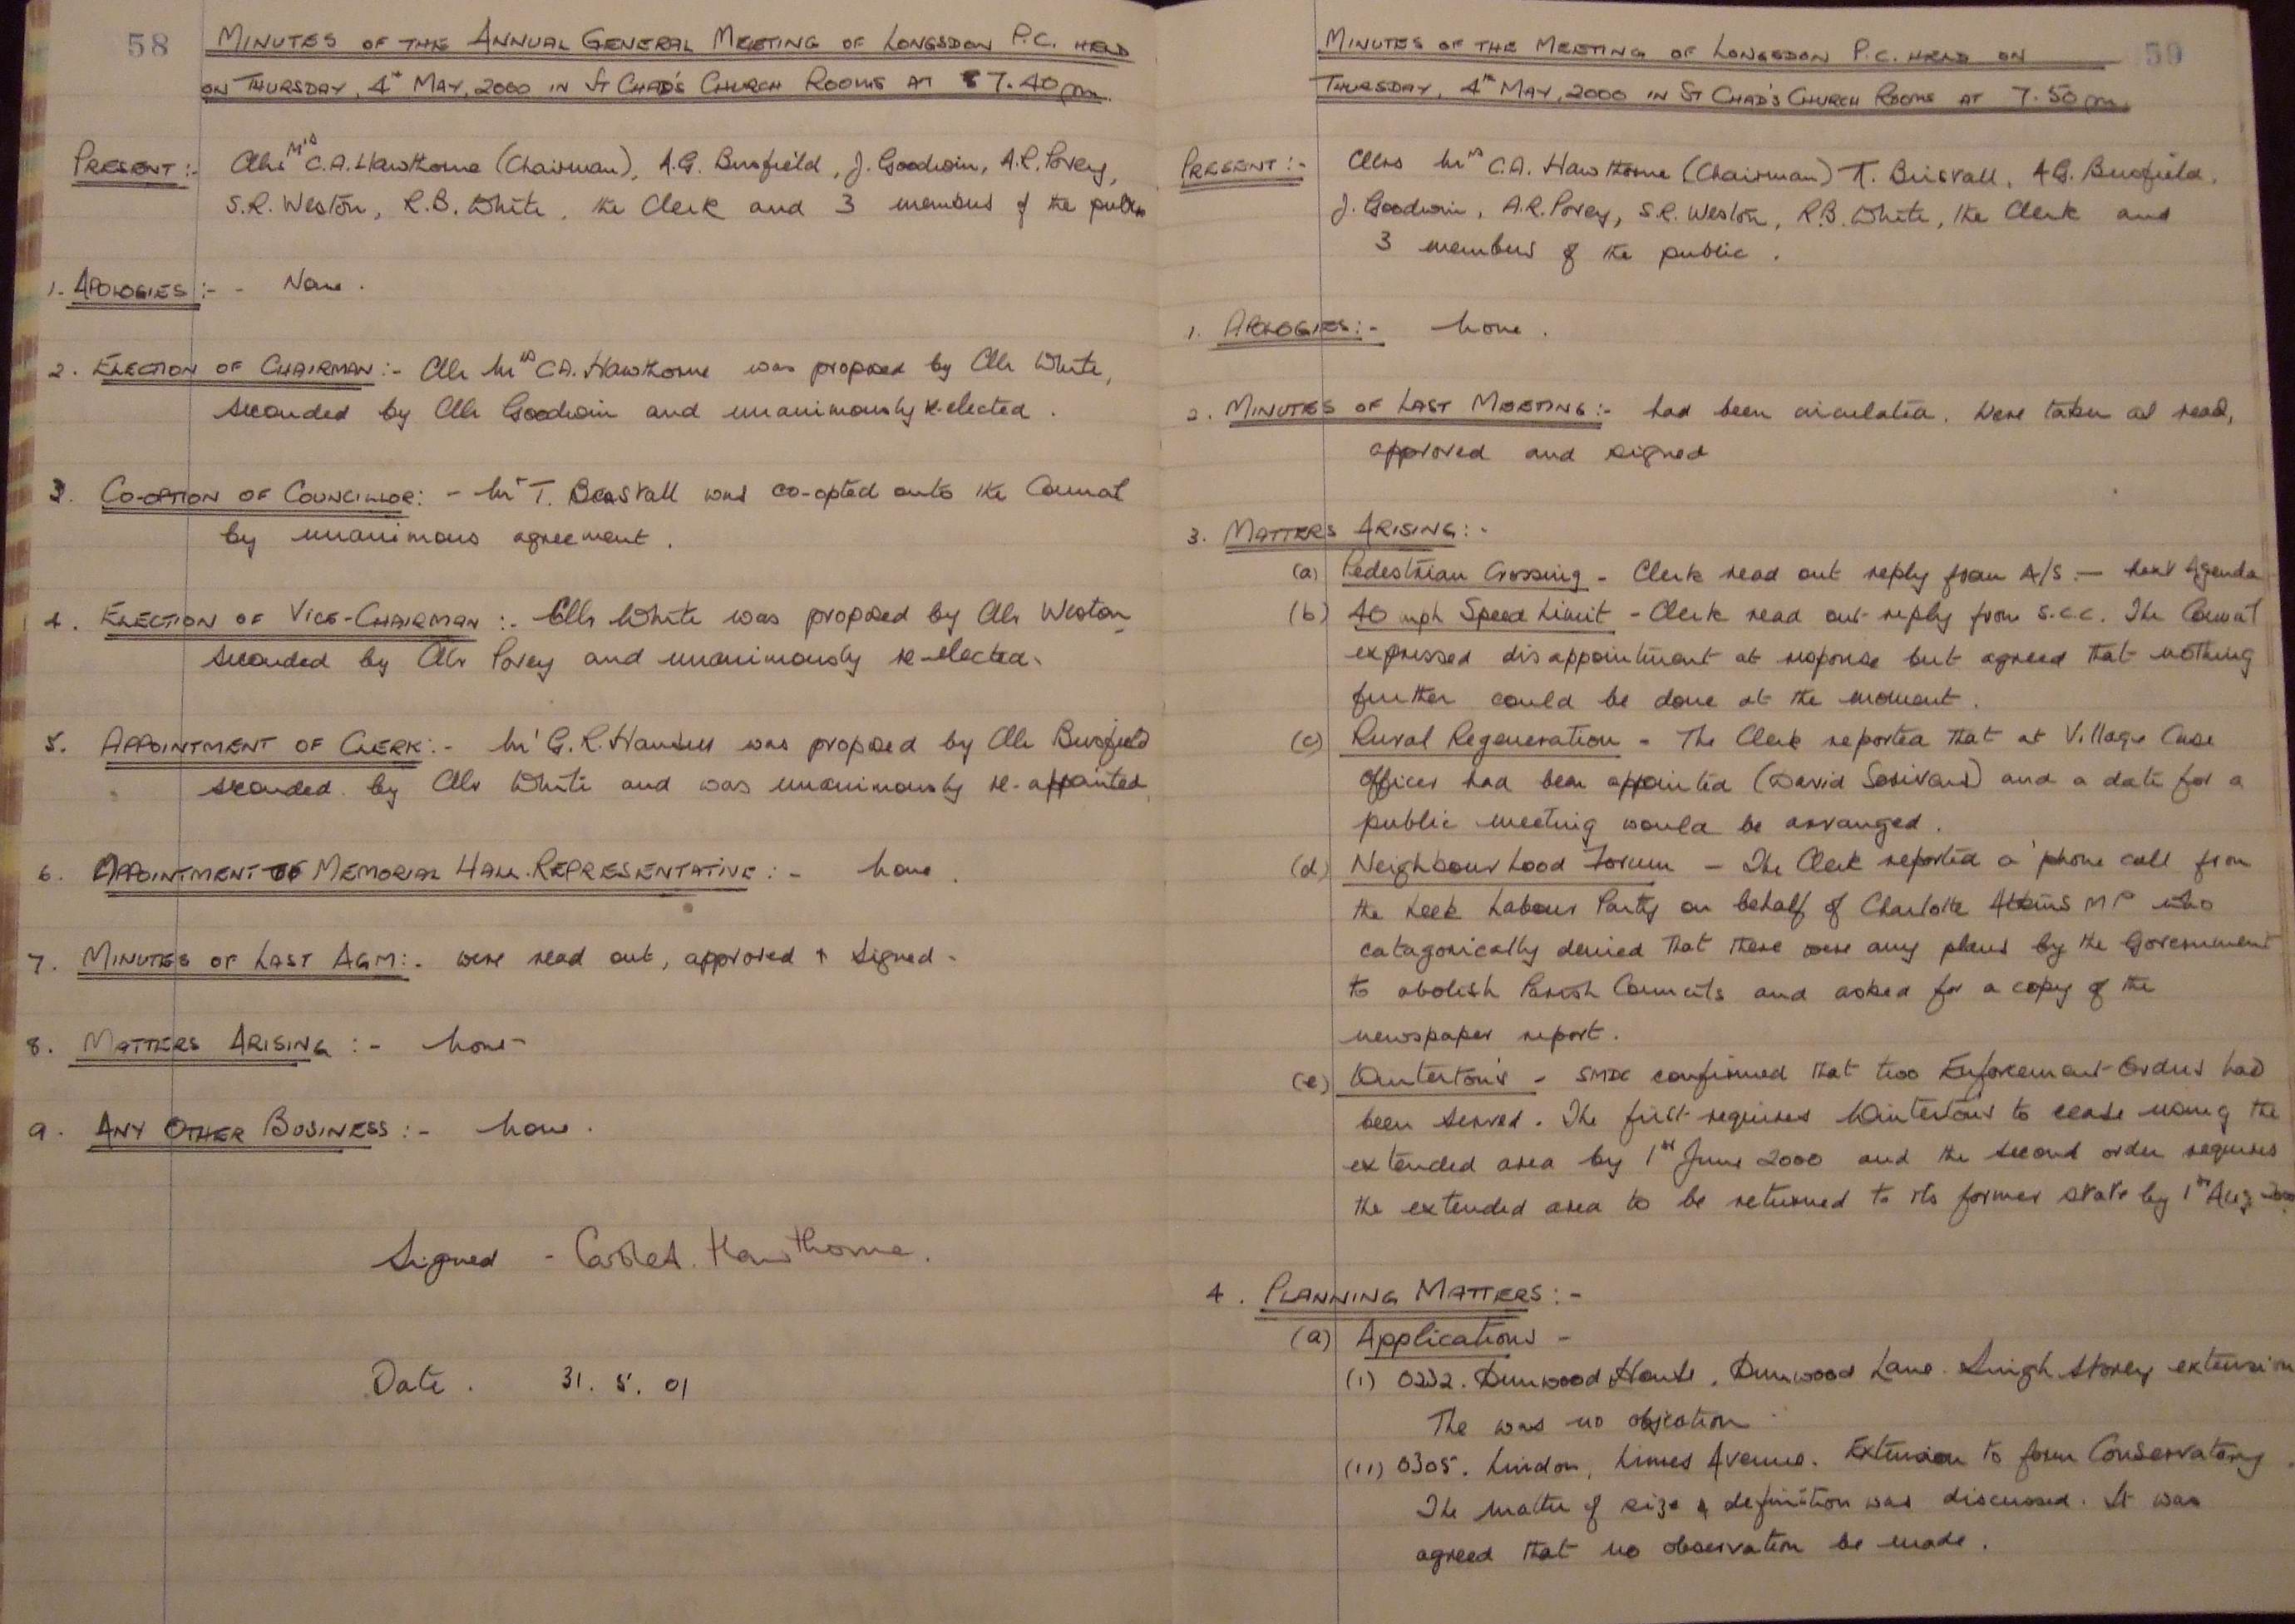 58
MINUTES OF THE ANNUAL GENERAL MEETING OF LONGSDON P.C. HELD
ON THURSDAY, 4th MAY, 2000 IN ST CHAD'S CHURCH ROOMS AT 7.40pm.
PRESENT:- Cllrs Mrs C.A. Hawthorne (Chairman), A.G. Busfield, J. Goodwin, A.R. Povey,
S.R. Weston, R.B. White, the Clerk and 3 members of the public
1. APOLOGIES:- - None.
2. ELECTION OF CHAIRMAN:- Cllr Mrs C.A. Hawthorne was proposed by Cllr White,
seconded by Cllr Goodwin and unanimously re-elected.
3. CO-OPTION OF COUNCILLOR:- Mr T. was co-opted onto the Council
by unanimous agreement.
4. ELECTION OF VICE-CHAIRMAN:- Cllr White was proposed by Cllr Weston,
seconded by Cllr Povey and unanimously re-elected.
5. APPOINTMENT OF CLERK:- Mr G.R. was proposed by Cllr Busfield
seconded by Cllr White and was unanimously re-appointed.
6. APPOINTMENT OF MEMORIAL HALL REPRESENTATIVE:- None.
7. MINUTES OF LAST AGM:- were read out, approved & signed-
8. MATTERS ARISING:- None-
9. ANY OTHER BUSINESS:- None.
Signed - Hawthorne.
Date. 31. 5. 01
59
MINUTES OF THE MEETING OF LONGSDON P.C. HELD ON
THURSDAY, 4th MAY, 2000 IN ST CHAD'S CHURCH ROOMS AT 7.50pm.
PRESENT:- Cllrs Mrs C.A. Hawthorne (Chairman) T. A.G. Busfield,
J. Goodwin, A.R. Povey, S.R. Weston, R.B. White, the Clerk and
3 members of the public.
1. APOLOGIES:- None.
2. MINUTES OF LAST MEETING:- had been circulated. Were taken as read,
approved and signed
3. MATTERS ARISING:-
(a) Pedestrian Crossing - Clerk read out reply from A/S - Next Agenda
(b) 40 mph Speed Limit - Clerk read out reply from S.C.C. The Council
expressed disappointment at response but agreed that nothing
further could be done at the moment.
(c) Rural Regeneration - The Clerk reported that at Village Case
Officer had been appointed (David and a date for a
public meeting would be arranged.
(d) Neighbourhood Forum - The Clerk reported a 'phone call from
the Leek Labour Party on behalf of Charlotte Atkins MP who
catagorically denied that there were any plans by the Government
to abolish Parish Councils and asked for a copy of the
newspaper report.
(e) Winterton's - SMDC confirmed that two Enforcement Orders had
been served. The first requires Winterton's to cease using the
extended area by 1st June 2000 and the second order requires
the extended area to be returned to its former state by 1st Aug 2000.
4. PLANNING MATTERS:-
(a) Applications -
(i) 0232. Dunwood House, Dunwood Lane. Single storey extension
The was no objection.
(ii) 0305. Lindon, Limes Avenue. Extension to form Conservatory.
The matter of size & definition was discussed. It was
agreed that no observation be made.